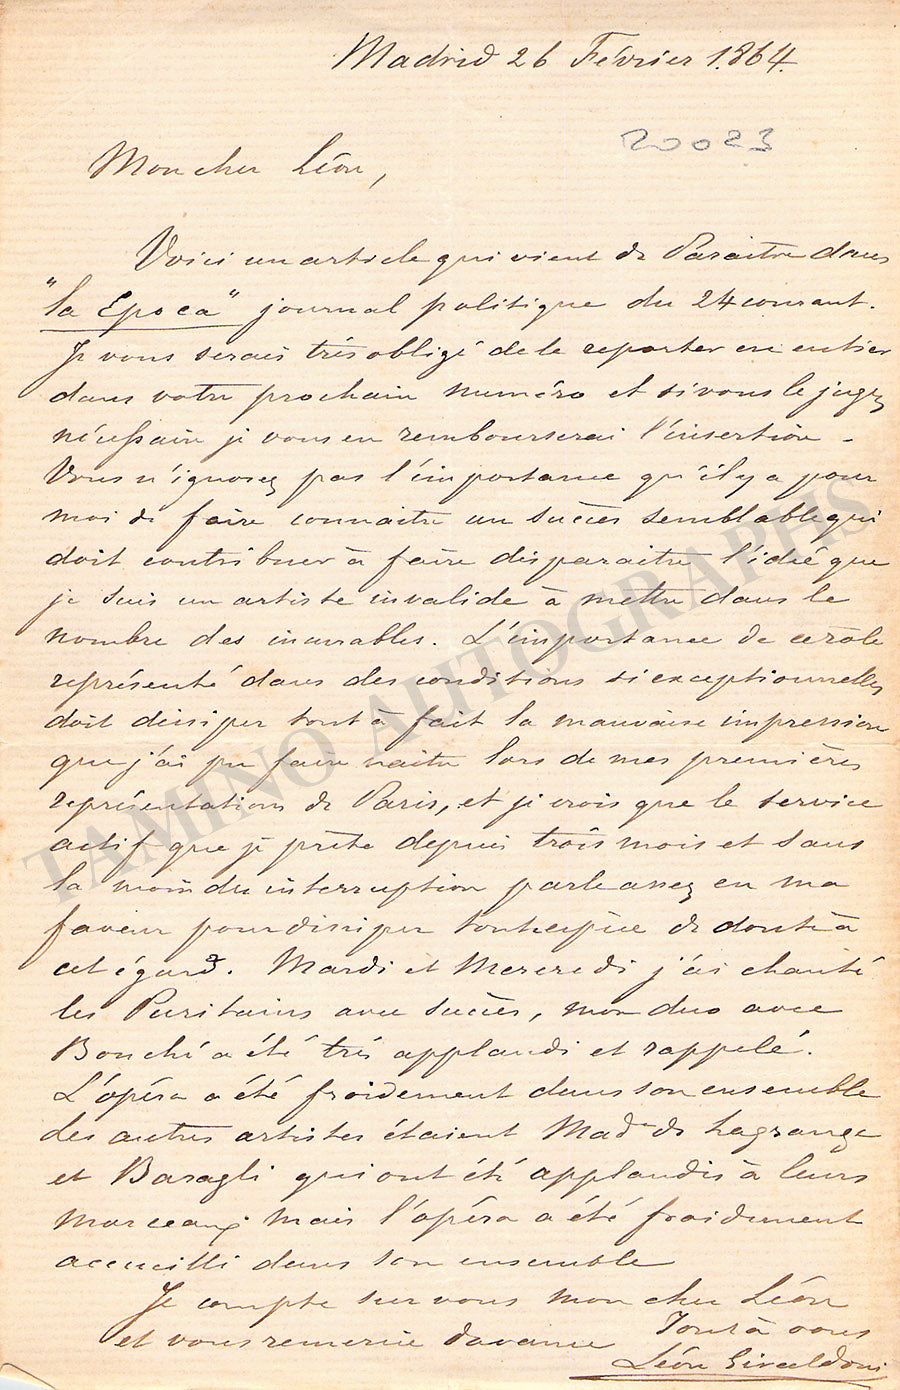 Madrid 26 Février 1864.
20023
Mon cher Léon,
Voici un article qui vient de Paraitre dans
"la Epoca" journal politique du 24 courant.
Je vous serais très obligé de le reporter en entier
dans votre prochain numéro et si vous le jugez
nécessaire je vous en rembourserai l'insertion -
Vous n'ignorez pas l'importance qu'il y a pour
moi de faire connaitre un succès semblable qui
doit contribuer à faire disparaitre l'idée que
je suis un artiste invalide à mettre dans le
nombre des incurables. L'importance de ce rôle
représenté dans des conditions si exceptionnelles
doit dissiper tout à fait la mauvaise impression
que j'ai pu faire naitre lors de mes premières
représentations de Paris, et je crois que le service
actif que je prête depuis trois mois et sans
la moindre interruption parle assez en ma
faveur pour dissiper toute espèce de doute à
cet égard. Mardi et Mercredi j'ai chanté
les Puritains avec succès, mon duo avec
Bouché a été très applaudi et rappelé.
L'opéra a été froidement dans son ensemble
les autres artistes étaient Made de Lagrange
et Baragli qui ont été applaudis à leurs
morceaux mais l'opéra a été froidement
accueilli dans son ensemble
Je compte sur vous mon cher Léon
et vous remercie d'avance Tout à vous
Léon Giraldoni
TAMINO AUTOGRAPHS